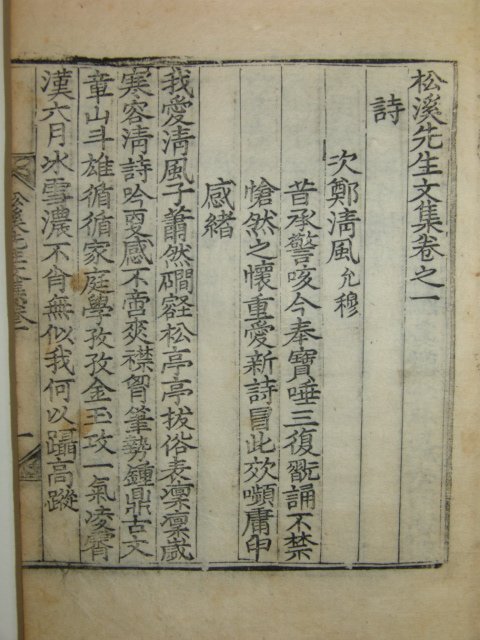 松溪先生文集卷之一
詩
次鄭淸風允穆
昔承警咳今奉寶唾三復翫誦不禁
愴然之懷重愛新詩冒此效嚬庸申
感緖
我愛淸風子蕭然磵壑松亭亭拔俗表凜凜歲
寒容淸詩吟感不啻爽襟胷筆勢鍾鼎古文
章山斗雄循循家庭學孜孜金玉攻一氣凌霄
漢六月冰雪濃不肖無似我何以躡高蹤
松溪先生文集卷一